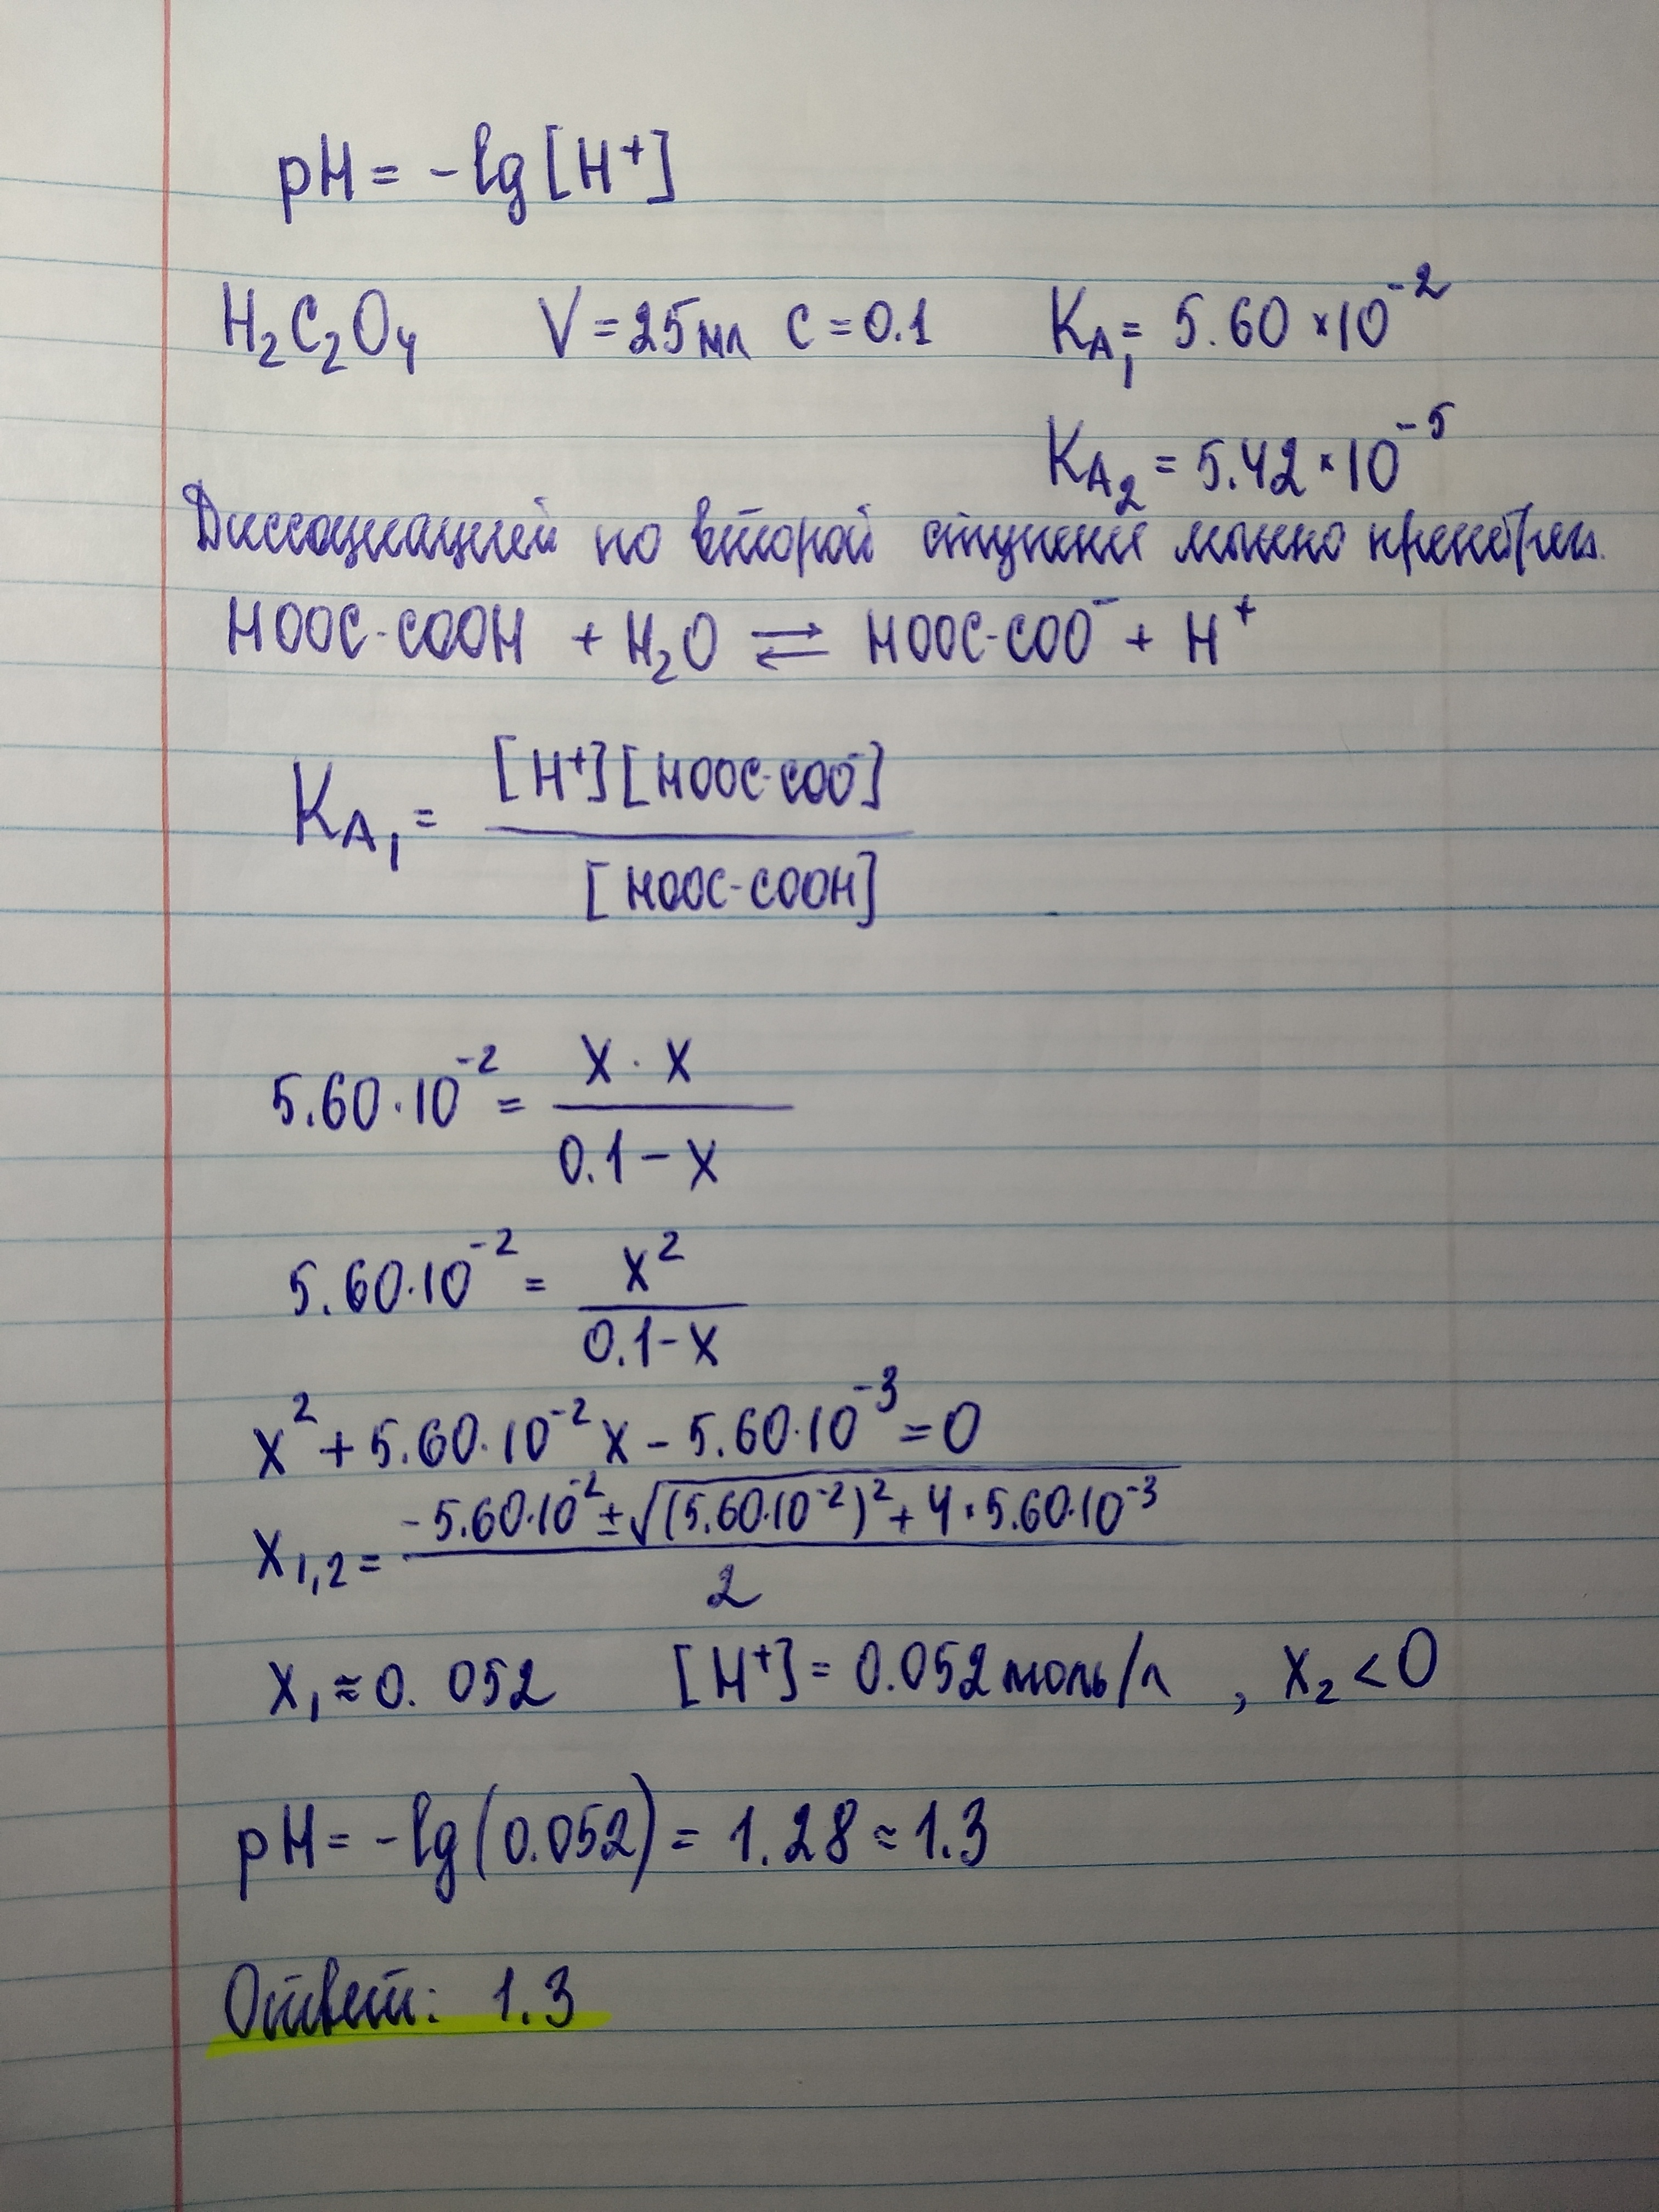 pH = -lg [H⁺]
H₂C₂O₄ V = 25 мл C = 0.1 K_A₁ = 5.60 × 10⁻²
K_A₂ = 5.42 × 10⁻⁵
Диссоциацией по второй ступени можно пренебречь.
HOOC-COOH + H₂O ⇌ HOOC-COO⁻ + H⁺
K_A₁ = [H⁺][HOOC-COO⁻] / [HOOC-COOH]
5.60 · 10⁻² = x · x / 0.1 - x
5.60 · 10⁻² = x² / 0.1 - x
x² + 5.60 · 10⁻² x - 5.60 · 10⁻³ = 0
x₁,₂ = -5.60 · 10⁻² ± √(5.60 · 10⁻²)² + 4 · 5.60 · 10⁻³ / 2
x₁ ≈ 0.052 [H⁺] = 0.052 моль/л , x₂ < 0
pH = -lg(0.052) = 1.28 ≈ 1.3
Ответ: 1.3